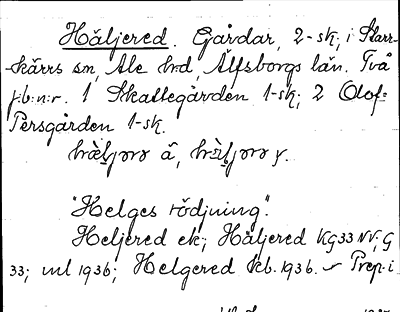 Häljered. Gårdar, 2-sk, i Starr-
kärrs sn, Ale hrd, Älfsborgs län. Två
j:b:n:r. 1 Skattegården 1-sk; 2 Olof-
Persgården 1-sk.
å, y.
"Helges rödjning".
Heljered ek; Häljered KG33 NV; G
33; ml 1936; Helgered kb. 1936. Prep. i